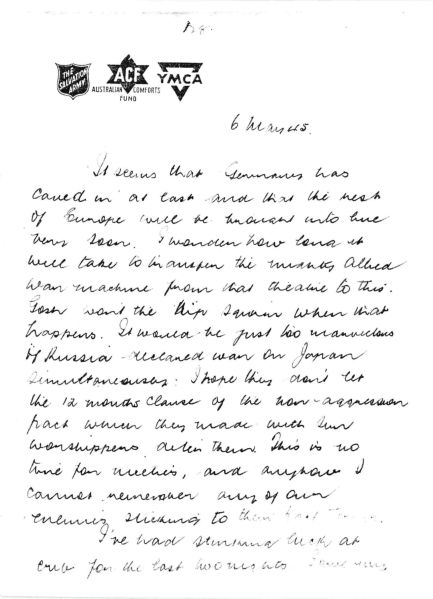 THE SALVATION ARMY
ACF
AUSTRALIAN COMFORTS FUND
YMCA
6 May 45.
It seems that Germany has
caved in at last and that the rest
of Europe will be brought into line
very soon. I wonder how long it
will take to transfer the mighty Allied
war machine from that theatre to this.
Gosh won't the Nip squirm when that
happens. It would be just too marvellous
if Russia declared war on Japan
simultaneously. I hope they don't let
the 12 months clause of the non-aggression
pact which they made with sun
worshippers deter them. This is no
time for niceties, and anyhow I
cannot remember any of our
enemies sticking to
I've had stinking luck at
crib for the last two nights